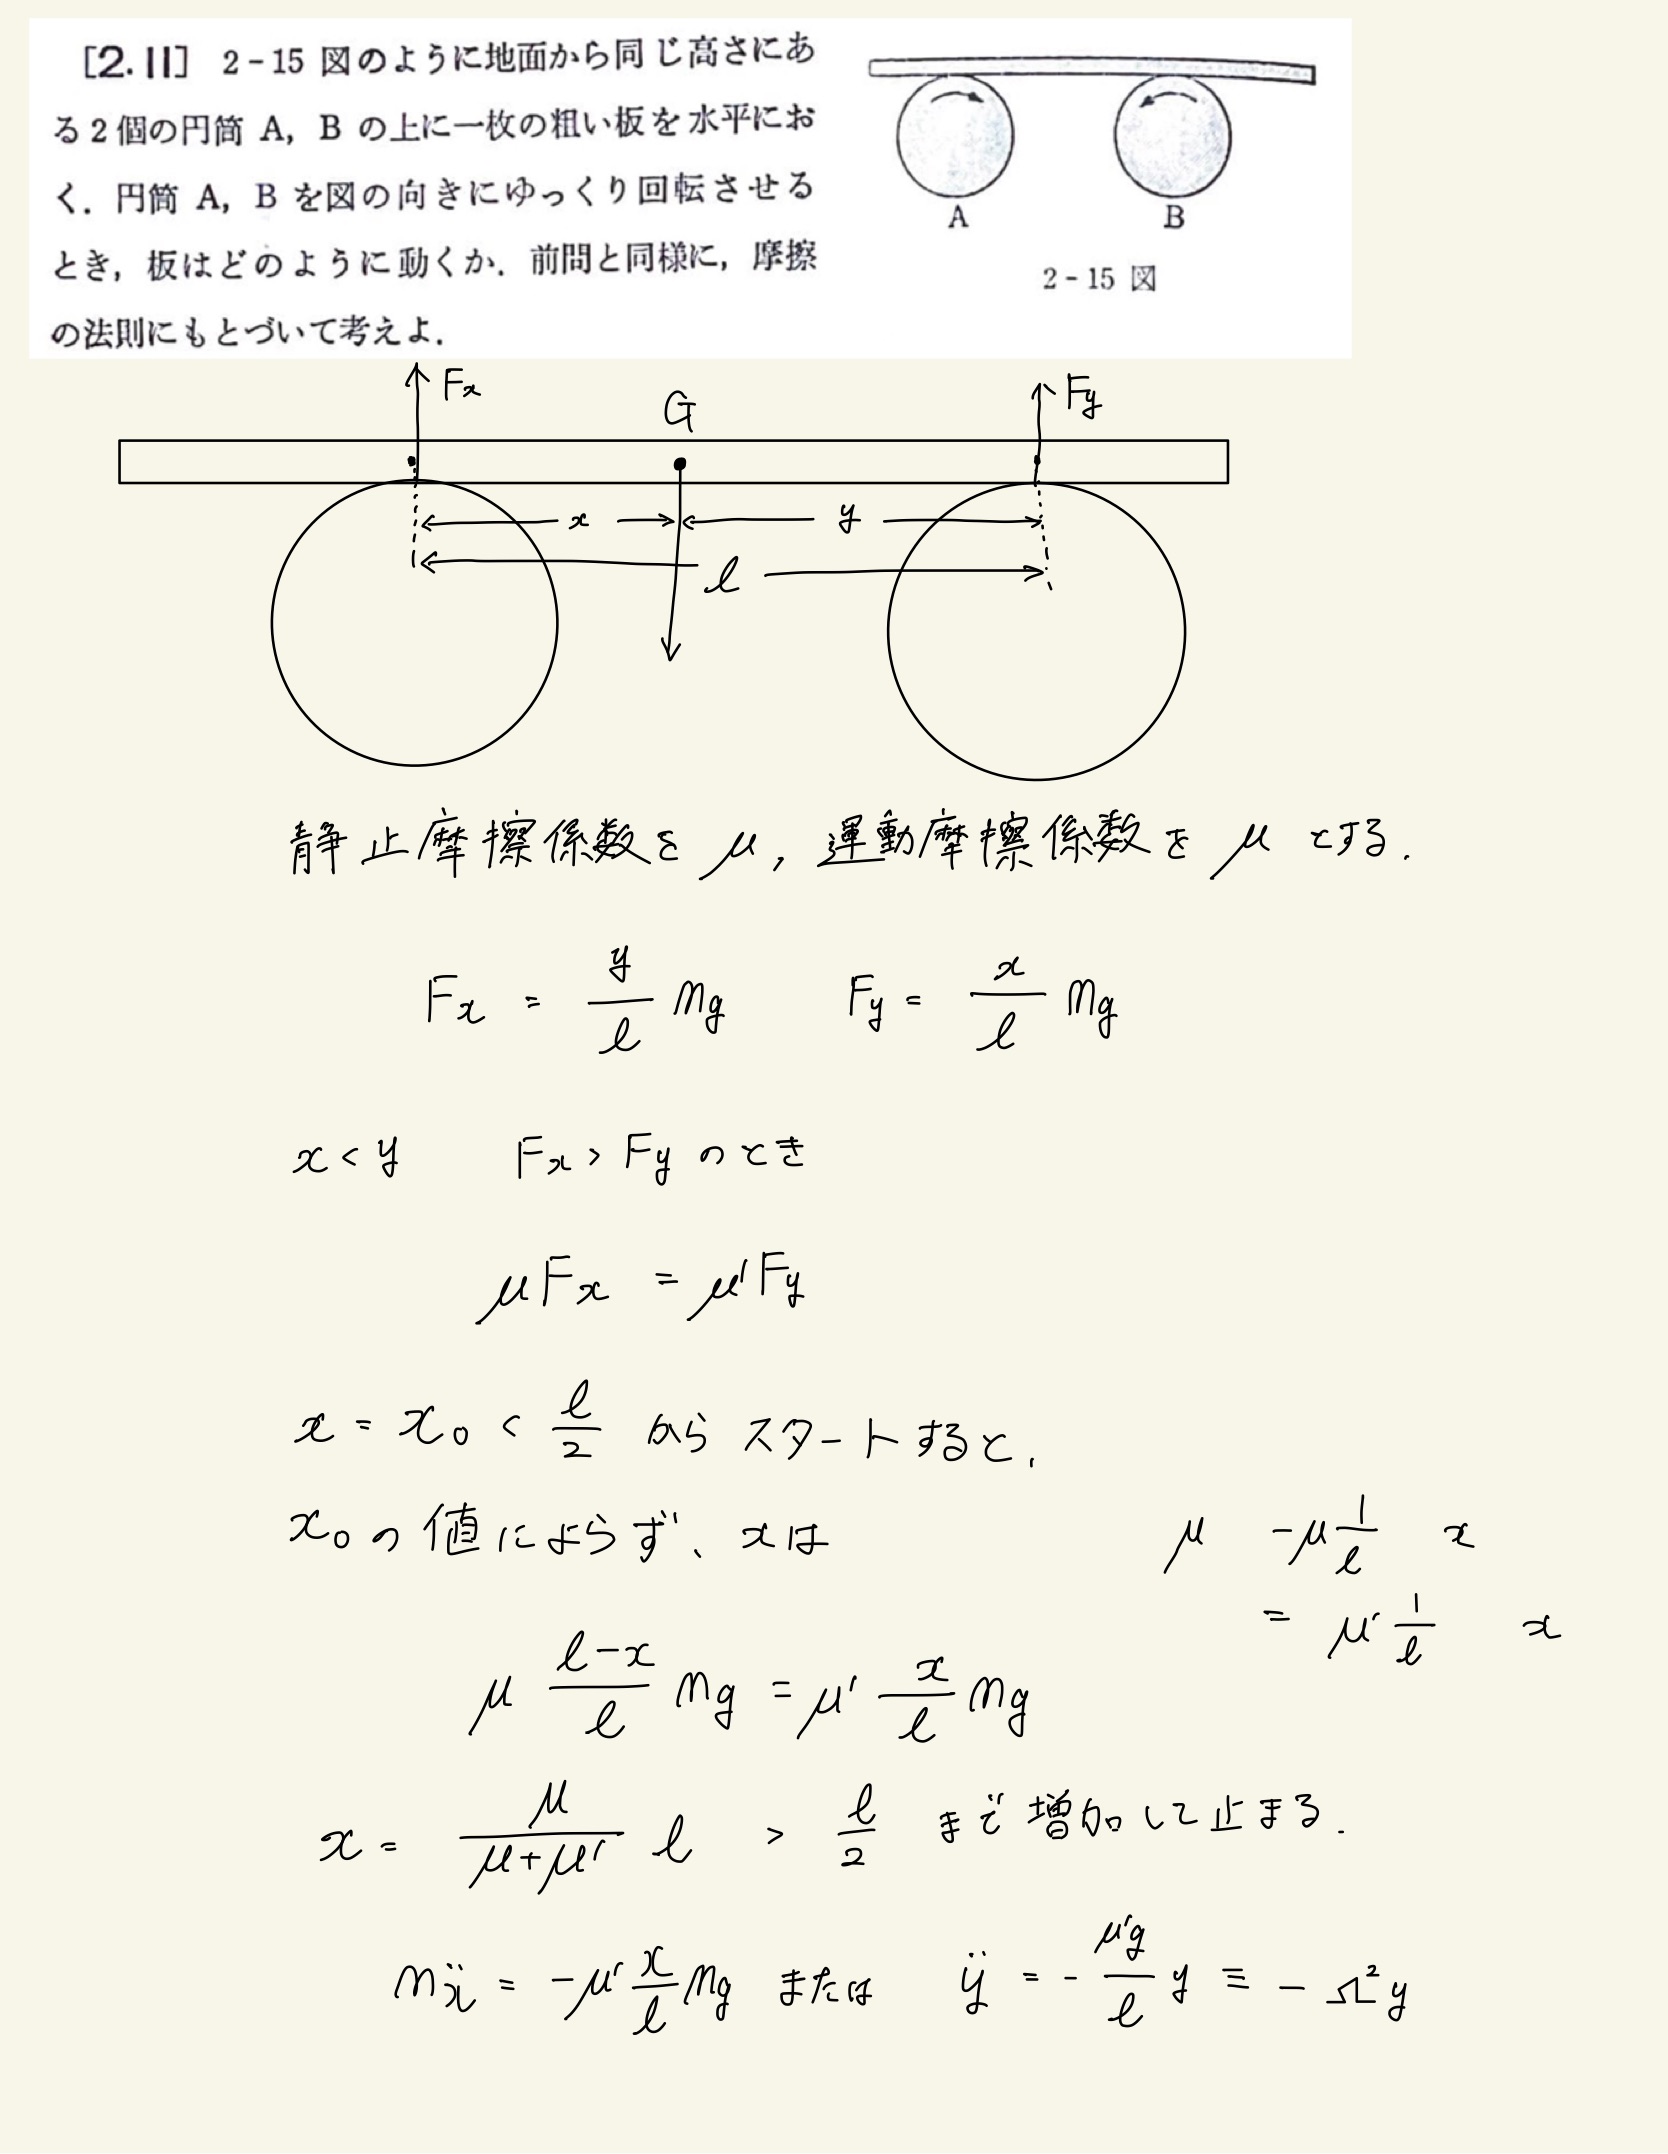 [2.11] 2-15 図のように地面から同じ高さにあ
る2個の円筒 A, B の上に一枚の粗い板を水平にお
く. 円筒 A, B を図の向きにゆっくり回転させる
とき, 板はどのように動くか. 前問と同様に, 摩擦
の法則にもとづいて考えよ.
A B
2-15 図
Fx G Fy
x y
l
静止摩擦係数を μ, 運動摩擦係数を μ とする.
Fx = y/l mg Fy = x/l mg
x < y Fx > Fy のとき
μFx = μ'Fy
x = x₀ < l/2 からスタートすると,
x₀の値によらず、xは
μ -μ 1/l x
= μ' 1/l x
μ (l-x)/l mg = μ' x/l mg
x = μ/(μ+μ') l > l/2 まで増加して止まる.
mẍ = -μ' x/l mg または ÿ = - μ'g/l y ≡ - Ω²y